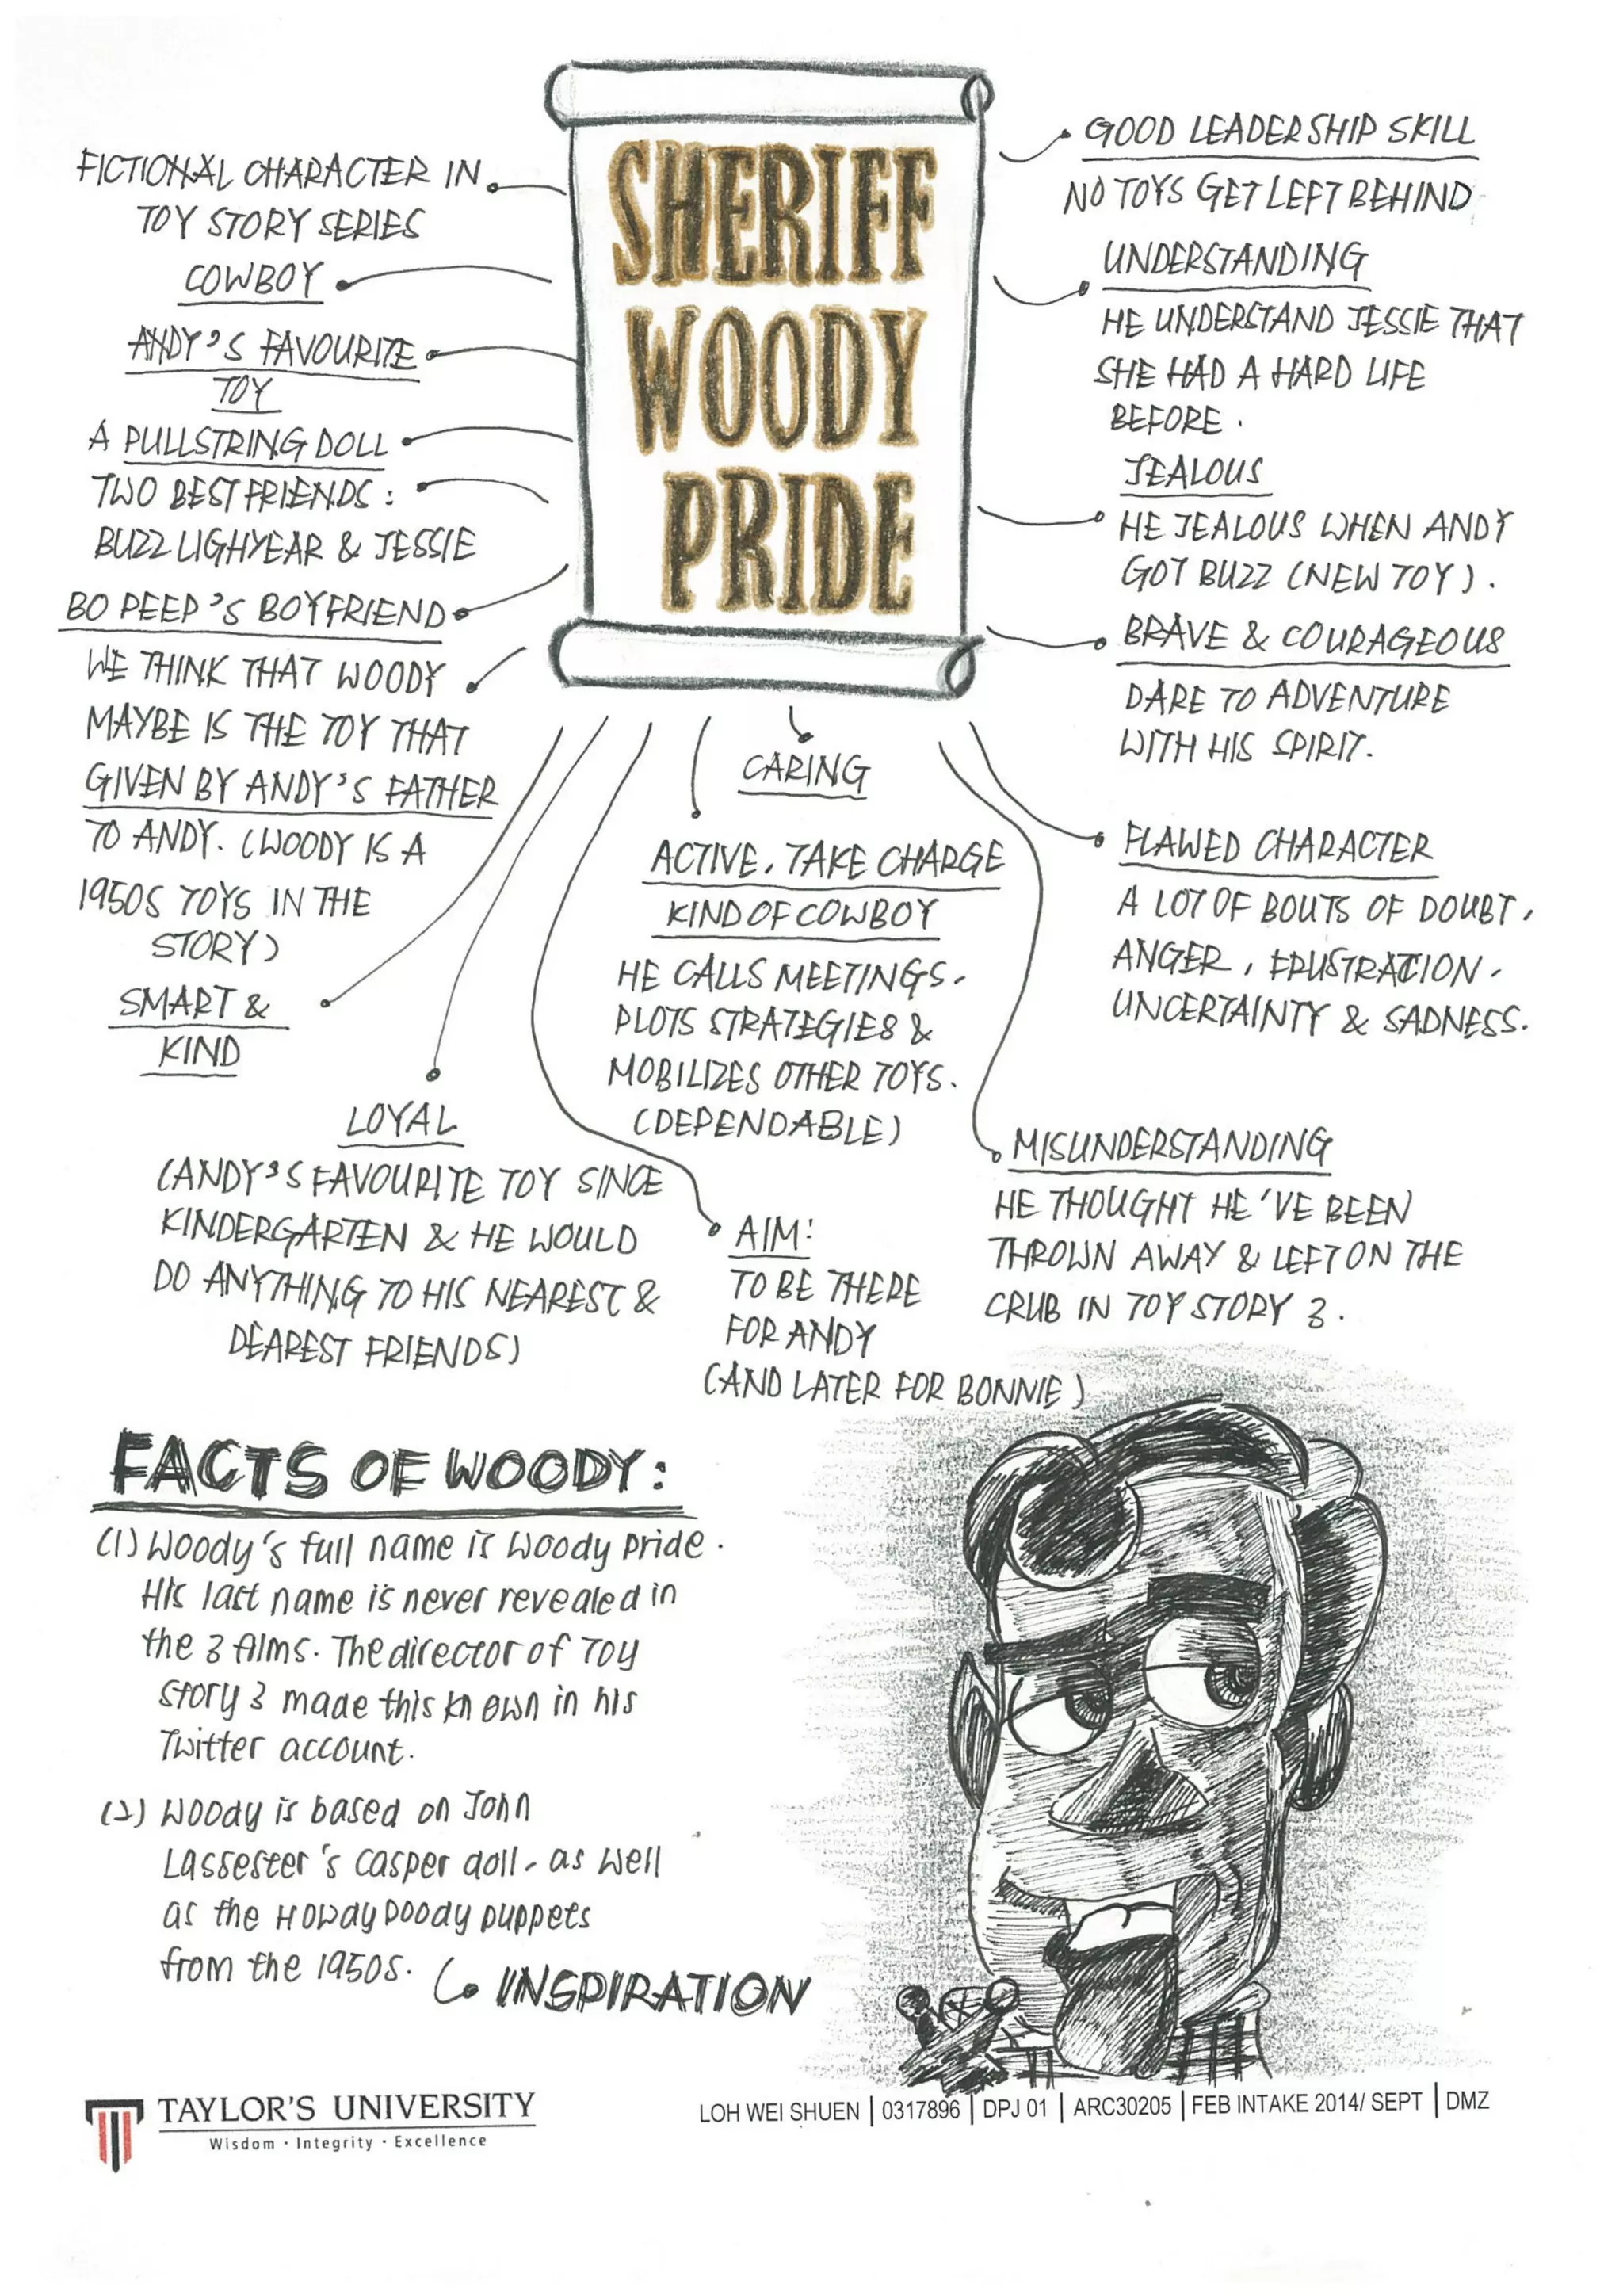 SHERIFF
WOODY
PRIDE
FICTIONAL CHARACTER IN
TOY STORY SERIES
COWBOY
ANDY'S FAVOURITE
TOY
A PULLSTRING DOLL
TWO BEST FRIENDS :
BUZZ LIGHYEAR & JESSIE
BO PEEP'S BOYFRIEND
WE THINK THAT WOODY
MAYBE IS THE TOY THAT
GIVEN BY ANDY'S FATHER
TO ANDY. (WOODY IS A
1950S TOYS IN THE
STORY)
SMART &
KIND
LOYAL
(ANDY'S FAVOURITE TOY SINCE
KINDERGARTEN & HE WOULD
DO ANYTHING TO HIS NEAREST &
DEAREST FRIENDS)
AIM:
TO BE THERE
FOR ANDY
(AND LATER FOR BONNIE)
CARING
ACTIVE, TAKE CHARGE
KIND OF COWBOY
HE CALLS MEETINGS,
PLOTS STRATEGIES &
MOBILIZES OTHER TOYS.
(DEPENDABLE)
GOOD LEADERSHIP SKILL
NO TOYS GET LEFT BEHIND
UNDERSTANDING
HE UNDERSTAND JESSIE THAT
SHE HAD A HARD LIFE
BEFORE.
JEALOUS
HE JEALOUS WHEN ANDY
GOT BUZZ (NEW TOY).
BRAVE & COURAGEOUS
DARE TO ADVENTURE
WITH HIS SPIRIT.
FLAWED CHARACTER
A LOT OF BOUTS OF DOUBT,
ANGER, FRUSTRATION,
UNCERTAINTY & SADNESS.
MISUNDERSTANDING
HE THOUGHT HE'VE BEEN
THROWN AWAY & LEFT ON THE
CRUB IN TOY STORY 3.
FACTS OF WOODY:
(1) Woody's full name is Woody Pride.
His last name is never revealed in
the 3 films. The director of Toy
story 3 made this known in his
Twitter account.
(2) Woody is based on John
Lassester's Casper doll, as well
as the Howdy Doody puppets
from the 1950s.
INSPIRATION
TAYLOR'S UNIVERSITY
Wisdom · Integrity · Excellence
LOH WEI SHUEN | 0317896 | DPJ 01 | ARC30205 | FEB INTAKE 2014/ SEPT | DMZ